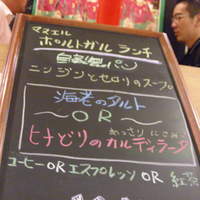 ママエル
ポルトガル ランチ
自家製パン
ニンジンとセロリのスープ
海老のタルト
〜OR〜
あっさり にこみ
ヒナどりのカルディラーダ
コーヒー OR エスプレッソ OR 紅茶